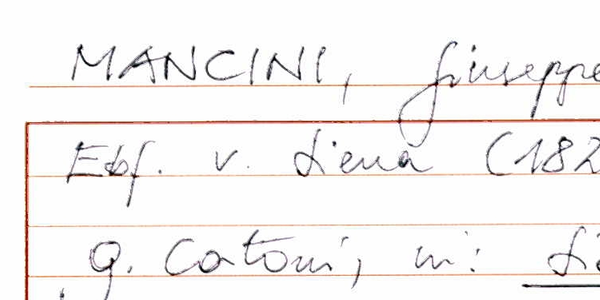 MANCINI, Giuseppe
Ebf. v. Siena (182
G. Catoni, in: Si